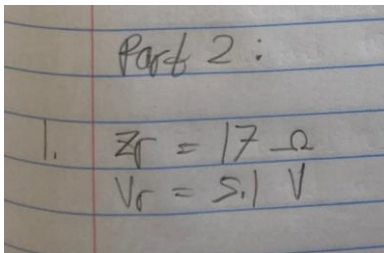 Part 2:
1. Zr = 17 Ω
Vr = 5.1 V